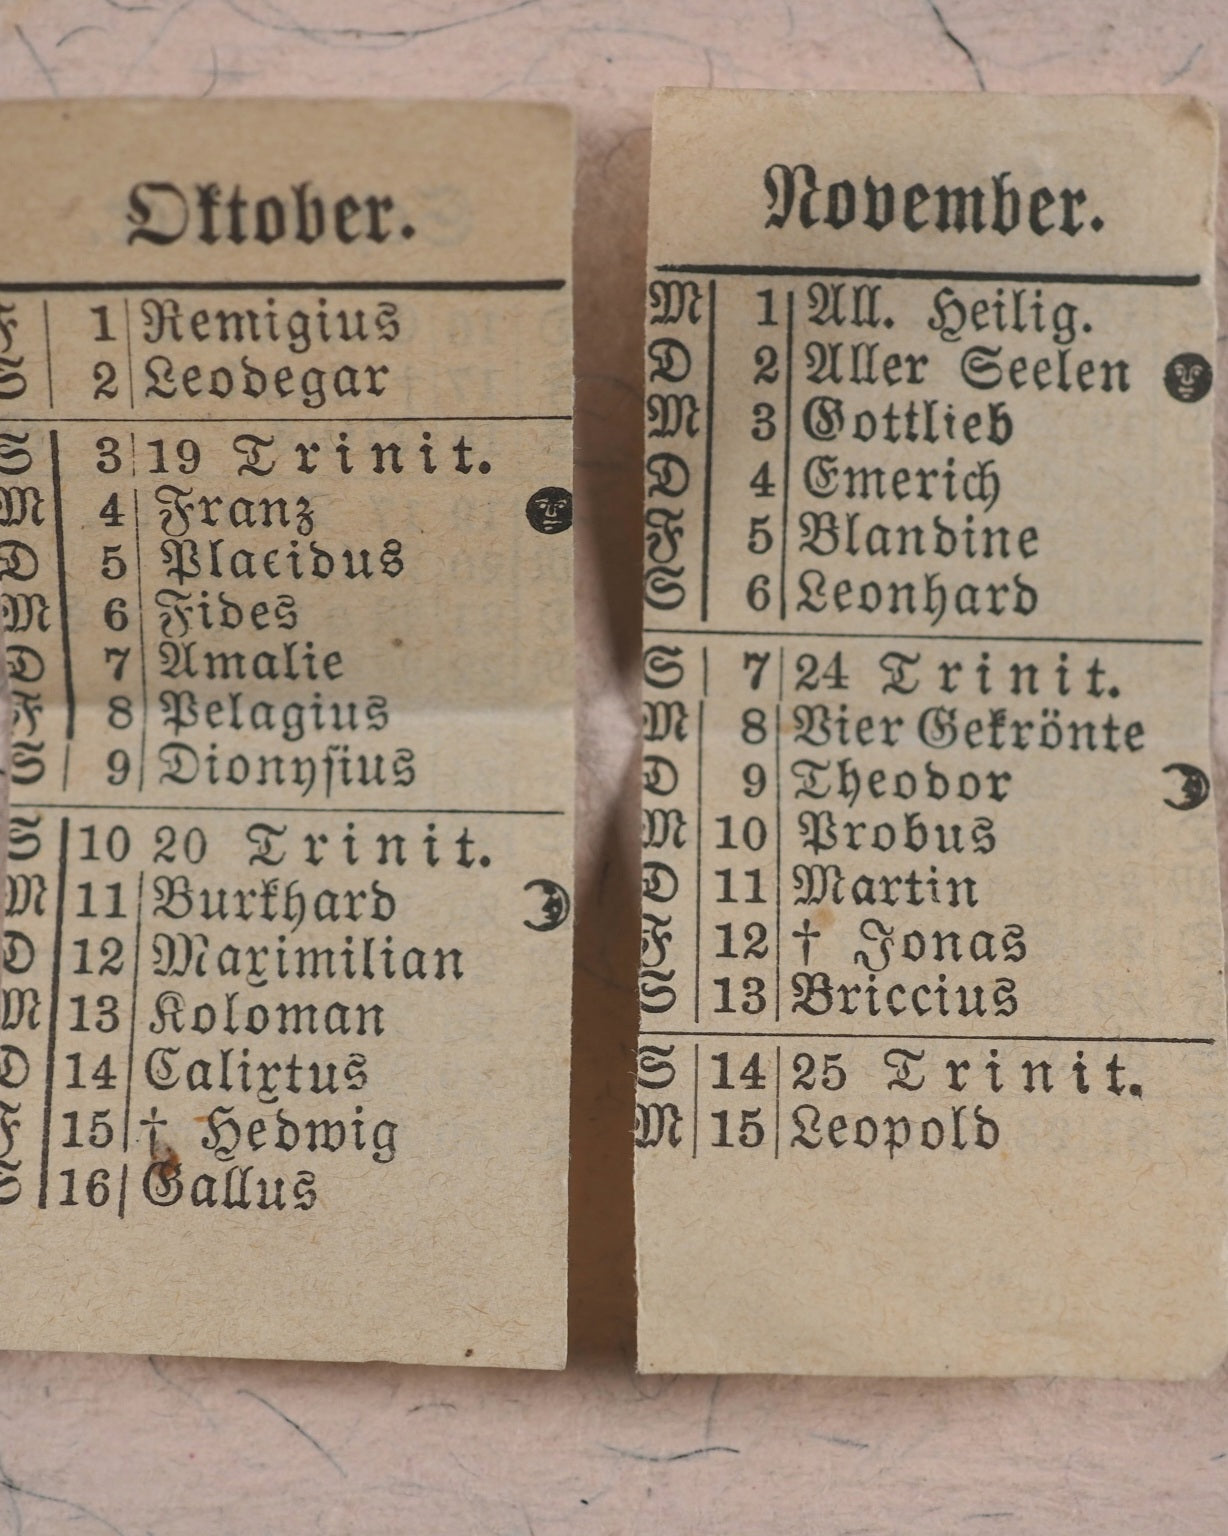 Oktober.
F 1 Remigius
S 2 Leodegar
S 3 19 Trinit.
M 4 Franz
D 5 Placidus
M 6 Fides
D 7 Amalie
F 8 Pelagius
S 9 Dionyſius
S 10 20 Trinit.
M 11 Burkhard
D 12 Maximilian
M 13 Koloman
D 14 Calixtus
F 15 † Hedwig
S 16 Gallus
November.
M 1 All. Heilig.
D 2 Aller Seelen
M 3 Gottlieb
D 4 Emerich
F 5 Blandine
S 6 Leonhard
S 7 24 Trinit.
M 8 Vier Gekrönte
D 9 Theodor
M 10 Probus
D 11 Martin
F 12 † Jonas
S 13 Briccius
S 14 25 Trinit.
M 15 Leopold